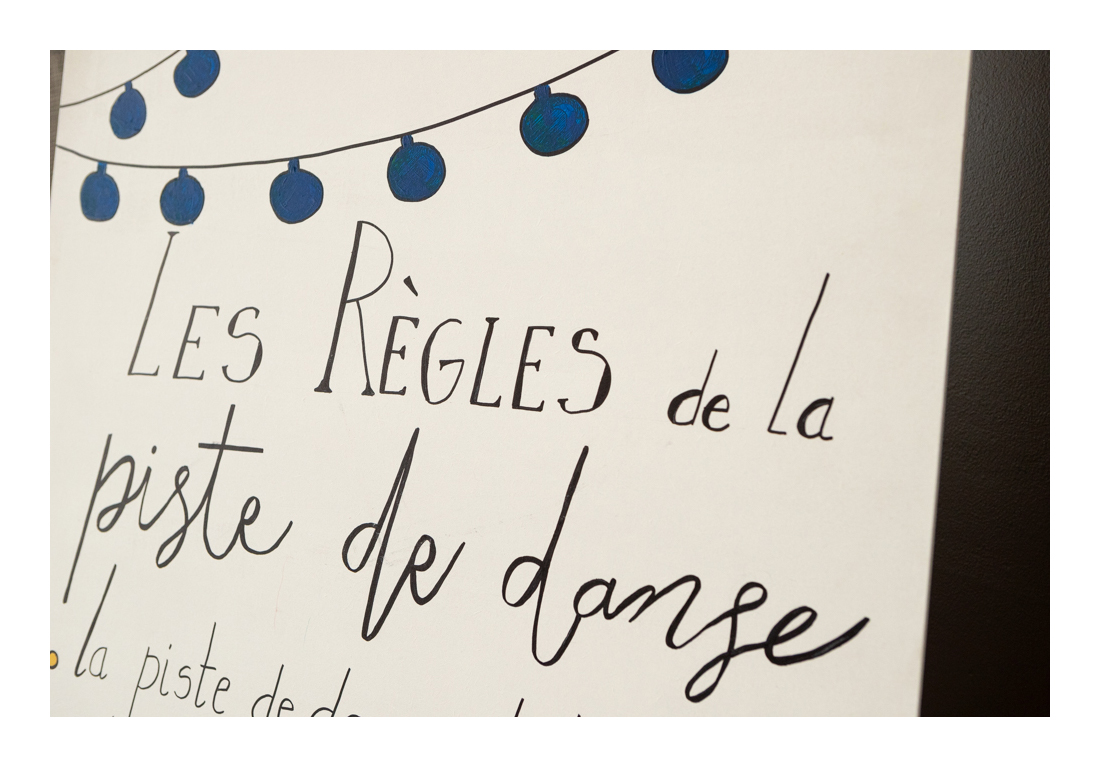 Les Règles de la
piste de danse
la piste de